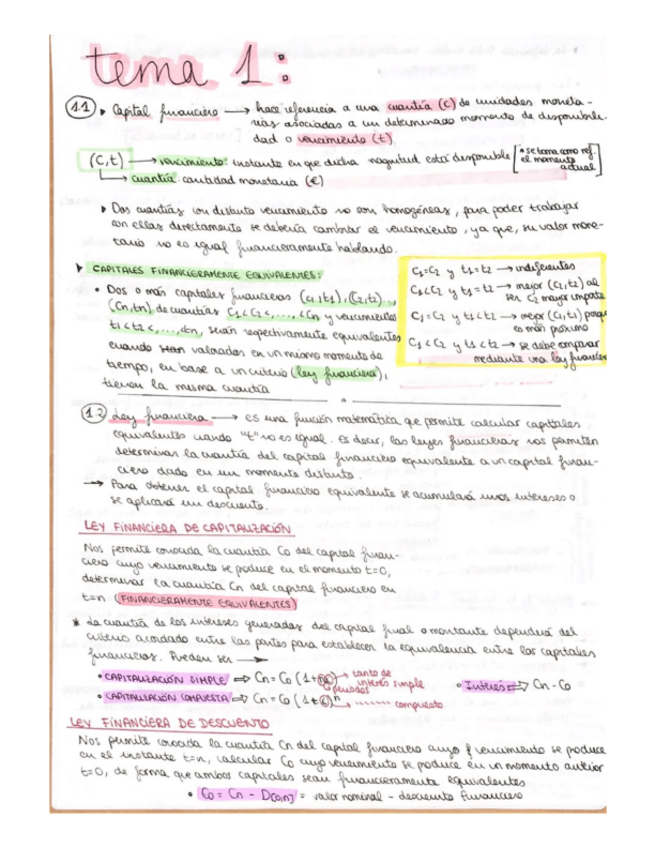 tema 1:
1.1 ▸ Capital financiero → hace referencia a una cuantía (C) de unidades moneta-
rias asociadas a un determinado momento de disponibili-
dad o vencimiento (t)
(C,t) → vencimiento: instante en que dicha magnitud está disponible [* se toma como ref. el momento actual]
→ cuantía: cantidad monetaria (€)
▸ Dos cuantías con distinto vencimiento no son homogéneas, para poder trabajar
con ellas directamente se debería cambiar el vencimiento, ya que, su valor mone-
tario no es igual financieramente hablando.
▸ CAPITALES FINANCIERAMENTE EQUIVALENTES:
• Dos o más capitales financieros (C1,t1), (C2,t2)...,
(Cn,tn) de cuantías C1<C2<,...,<Cn y vencimientos
t1<t2<,...,<tn, serán respectivamente equivalentes
cuando sean valorados en un mismo momento de
tiempo, en base a un criterio (ley financiera),
tienen la misma cuantía
C1=C2 y t1=t2 → indiferentes
C1<C2 y t1=t2 → mejor (C2,t2) al
ser C2 mayor importe
C1=C2 y t1<t2 → mejor (C1,t1) porque
es más próximo
C1<C2 y t1<t2 → se debe comparar
mediante una ley financier
1.2 Ley financiera → es una función matemática que permite calcular capitales
equivalentes cuando "t" no es igual. Es decir, las leyes financieras nos permiten
determinar la cuantía del capital financiero equivalente a un capital finan-
ciero dado en un momento distinto.
→ Para obtener el capital financiero equivalente se acumulará unos intereses o
se aplicará un descuento.
LEY FINANCIERA DE CAPITALIZACIÓN
Nos permite conocida la cuantía C0 del capital finan-
ciero cuyo vencimiento se produce en el momento t=0,
determinar la cuantía Cn del capital financiero en
t=n (FINANCIERAMENTE EQUIVALENTES)
* La cuantía de los intereses generados del capital final o montante dependerá del
criterio acordado entre las partes para establecer la equivalencia entre los capitales
financieros. Pueden ser →
• CAPITALIZACIÓN SIMPLE ⇒ Cn = C0 (1+ni) → tanto de interés simple
↳ periodos
• Interés ⇒ Cn - C0
• CAPITALIZACIÓN COMPUESTA ⇒ Cn = C0 (1+i)ⁿ ········ compuesto
LEY FINANCIERA DE DESCUENTO
Nos permite conocida la cuantía Cn del capital financiero cuyo vencimiento se produce
en el instante t=n, calcular C0 cuyo vencimiento se produce en un momento anterior
t=0, de forma que ambos capitales sean financieramente equivalentes
• C0 = Cn - D[0,n] = valor nominal - descuento financiero